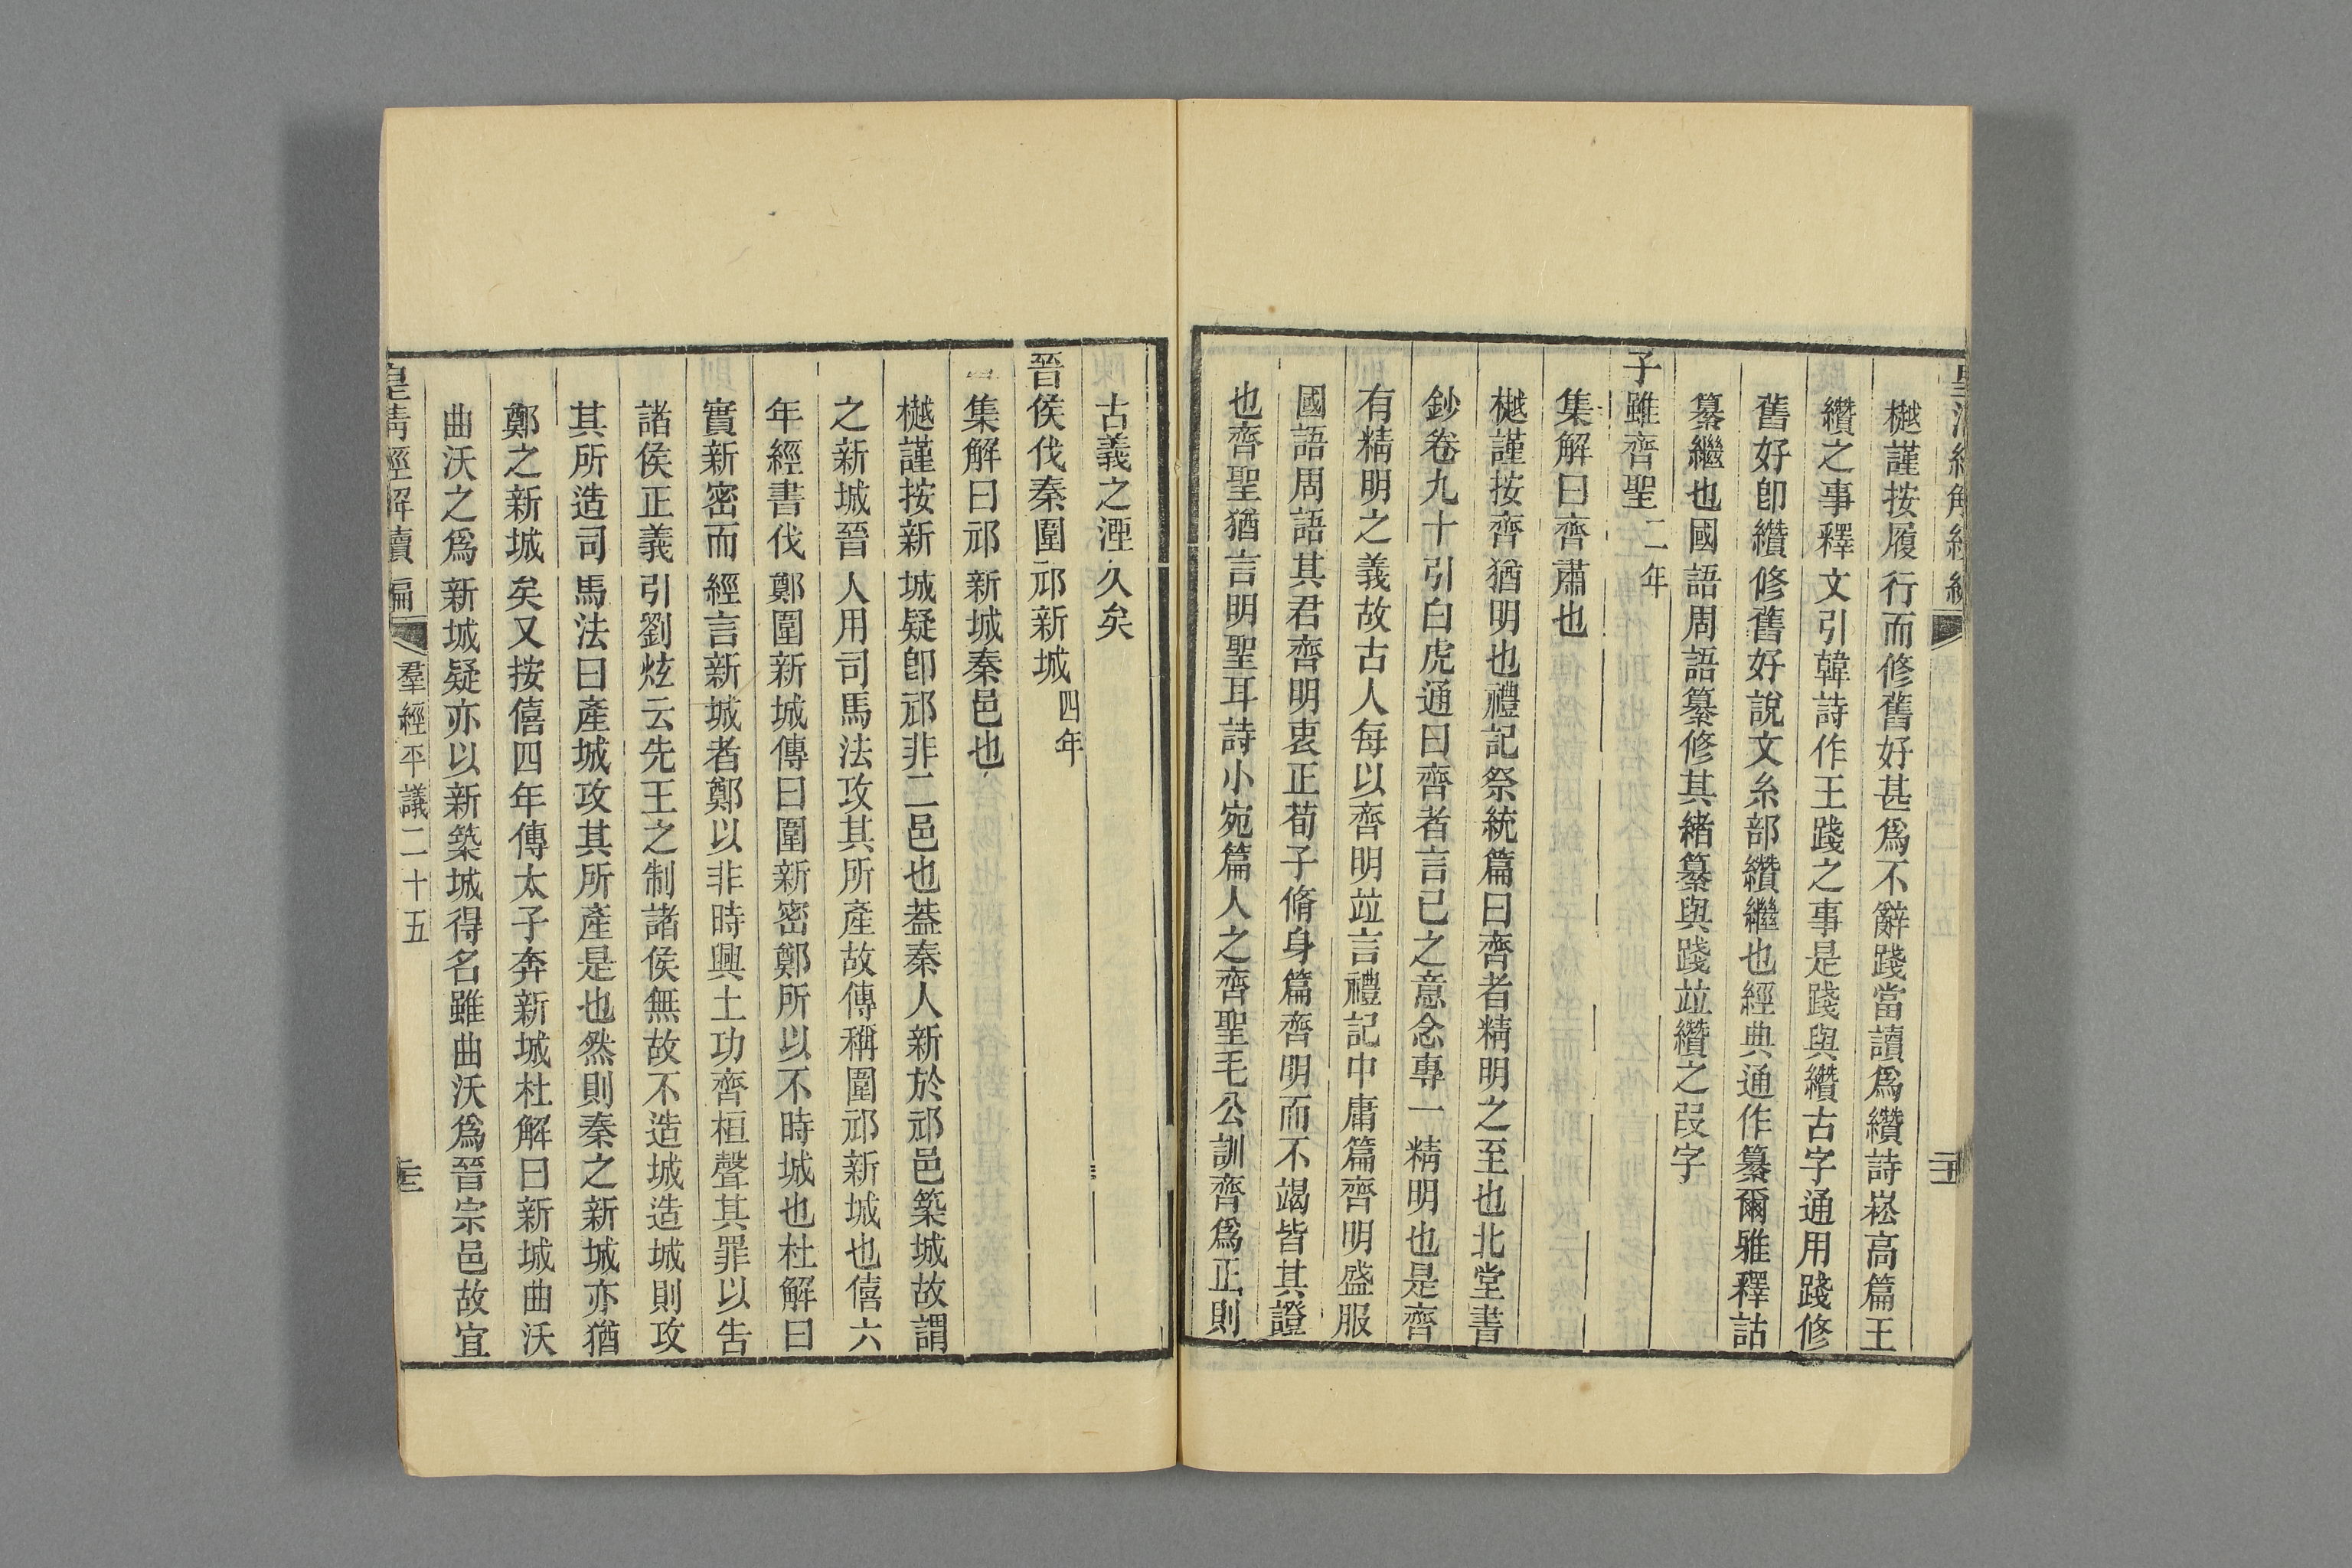 樾謹按履行而修舊好甚爲不辭踐當讀爲纘詩崧高篇王
纘之事釋文引韓詩作王踐之事是踐與纘古字通用踐修
舊好卽纘修舊好說文糸部纘繼也經典通作纂爾雅釋詁
纂繼也國語周語纂修其緒纂與踐竝纘之叚字
子雖齊聖二年
集解曰齊肅也
樾謹按齊猶明也禮記祭統篇曰齊者精明之至也北堂書
鈔卷九十引白虎通曰齊者言己之意念專一精明也是齊
有精明之義故古人每以齊明竝言禮記中庸篇齊明盛服
國語周語其君齊明衷正荀子脩身篇齊明而不竭皆其證
也齊聖猶言明聖耳詩小宛篇人之齊聖毛公訓齊爲正則
古義之湮久矣
晉侯伐秦圍邧新城四年
集解曰邧新城秦邑也
樾謹按新城疑卽邧非二邑也葢秦人新於邧邑築城故謂
之新城晉人用司馬法攻其所產故傳稱圍邧新城也僖六
年經書伐鄭圍新城傳曰圍新密鄭所以不時城也杜解曰
實新密而經言新城者鄭以非時興土功齊桓聲其罪以告
諸侯正義引劉炫云先王之制諸侯無故不造城造城則攻
其所造司馬法曰產城攻其所產是也然則秦之新城亦猶
鄭之新城矣又按僖四年傳太子奔新城杜解曰新城曲沃
曲沃之爲新城疑亦以新築城得名雖曲沃爲晉宗邑故宜
皇淸經解續編 羣經平議二十五